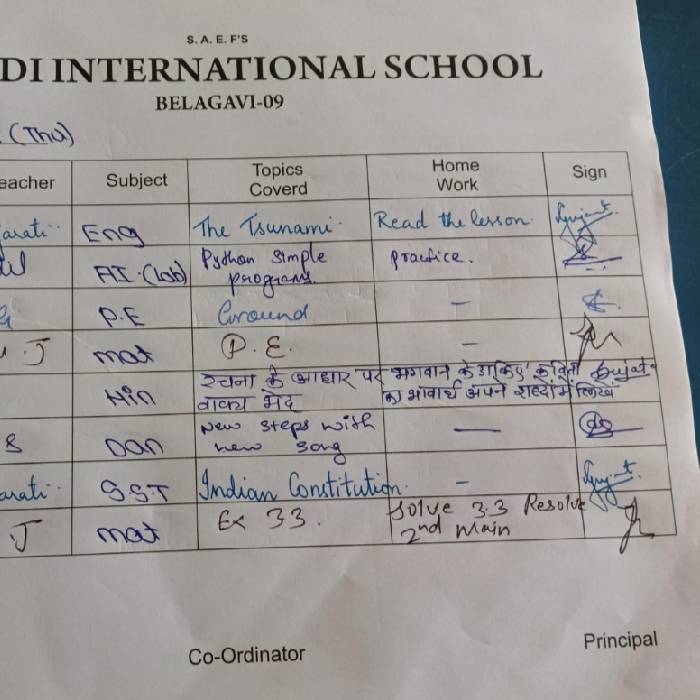 S. A. E. F'S
DI INTERNATIONAL SCHOOL
BELAGAVI-09
(Thu)
eacher Subject Topics Coverd Home Work Sign
arati Eng The Tsunami. Read the lesson.
AI.(Lab) Python simple programs practice.
P.E Ground –
J mat P. E. –
Hin रचना के आधार पर वाक्य भेद भगवान के डाकिए कविता का भावार्थ अपने शब्दों में लिखें
S Dan New steps with new song —
arati SST Indian Constitution. –
J mat Ex 33. Solve 3.3 Resolve 2nd main
Co-Ordinator
Principal